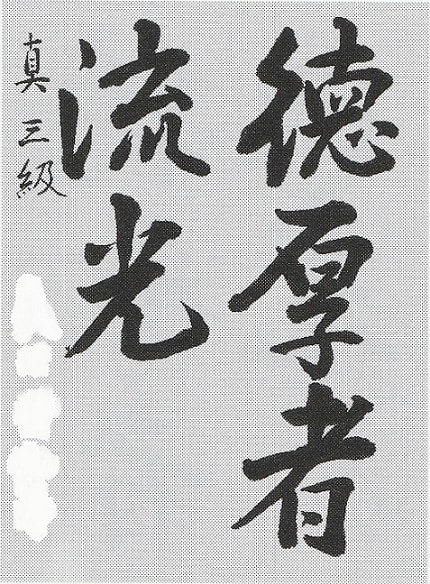 徳厚者
流光
真 三級